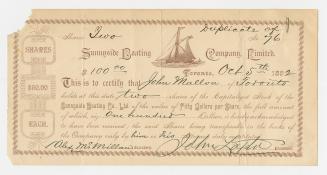 Shares Two Duplicate of
No 76
Sunnyside Boating Company, Limited.
$100.00 Toronto, Oct 5th 1882
This is to certify that John Mallon of Toronto
is the holder of two shares of the Capital Stock of the
Sunnyside Boating Co. Ltd. of the value of Fifty Dollars per Share, the full amount
of which, viz One hundred Dollars, is hereby acknowledged
to have been received, the said Shares being transferable on the books of
the Company only by him or his
Alex McMillan
SHARES
$50.00
EACH.